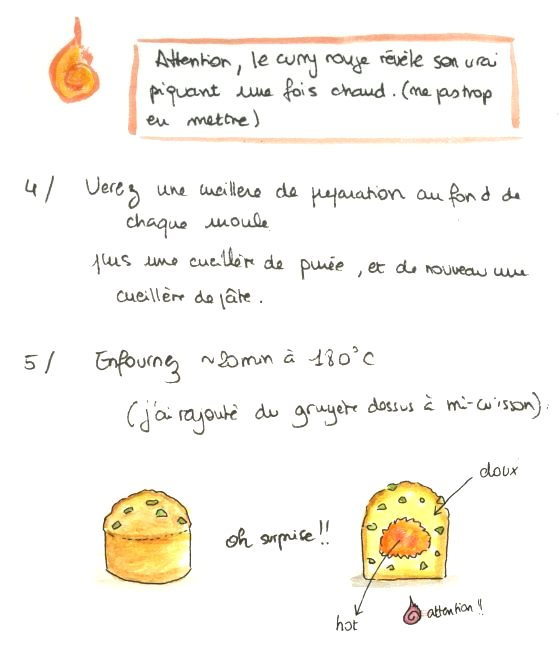 Attention, le curry rouge révèle son vrai
piquant une fois chaud. (ne pas trop
en mettre)
4/ Verez une cueillere de preparation au fond de
chaque moule
puis une cueillère de purée, et de nouveau une
cueillère de pâte.
5/ Enfournez ~20min à 180°C
(j'ai rajouté du gruyère dessus à mi-cuisson).
doux
oh surprise!!
hot
attention!!